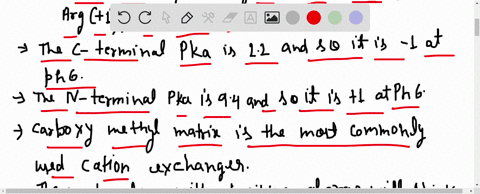 Arg (+1
→ The C-terminal Pka is 2.2 and so it is -1 at
ph6.
→ The N-terminal Pka is 9.4 and so it is +1 at Ph6.
→ Carboxy methyl matrix is the most commonly
used Cation exchanger.